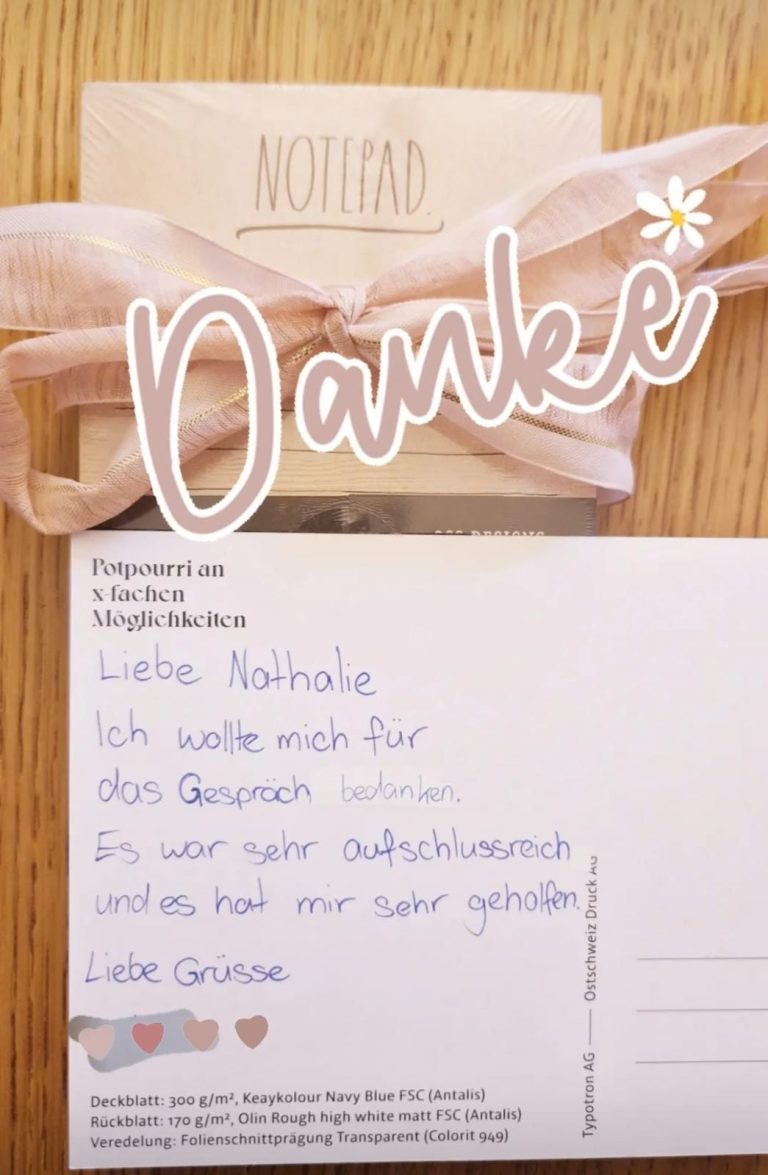 NOTEPAD.
Danke
Potpourri an
x-fachen
Möglichkeiten
Liebe Nathalie
Ich wollte mich für
das Gespräch bedanken.
Es war sehr aufschlussreich
und es hat mir sehr geholfen.
Liebe Grüsse
Deckblatt: 300 g/m², Keaykolour Navy Blue FSC (Antalis)
Rückblatt: 170 g/m², Olin Rough high white matt FSC (Antalis)
Veredelung: Folienschnittprägung Transparent (Colorit 949)
Typotron AG — Ostschweiz Druck AG